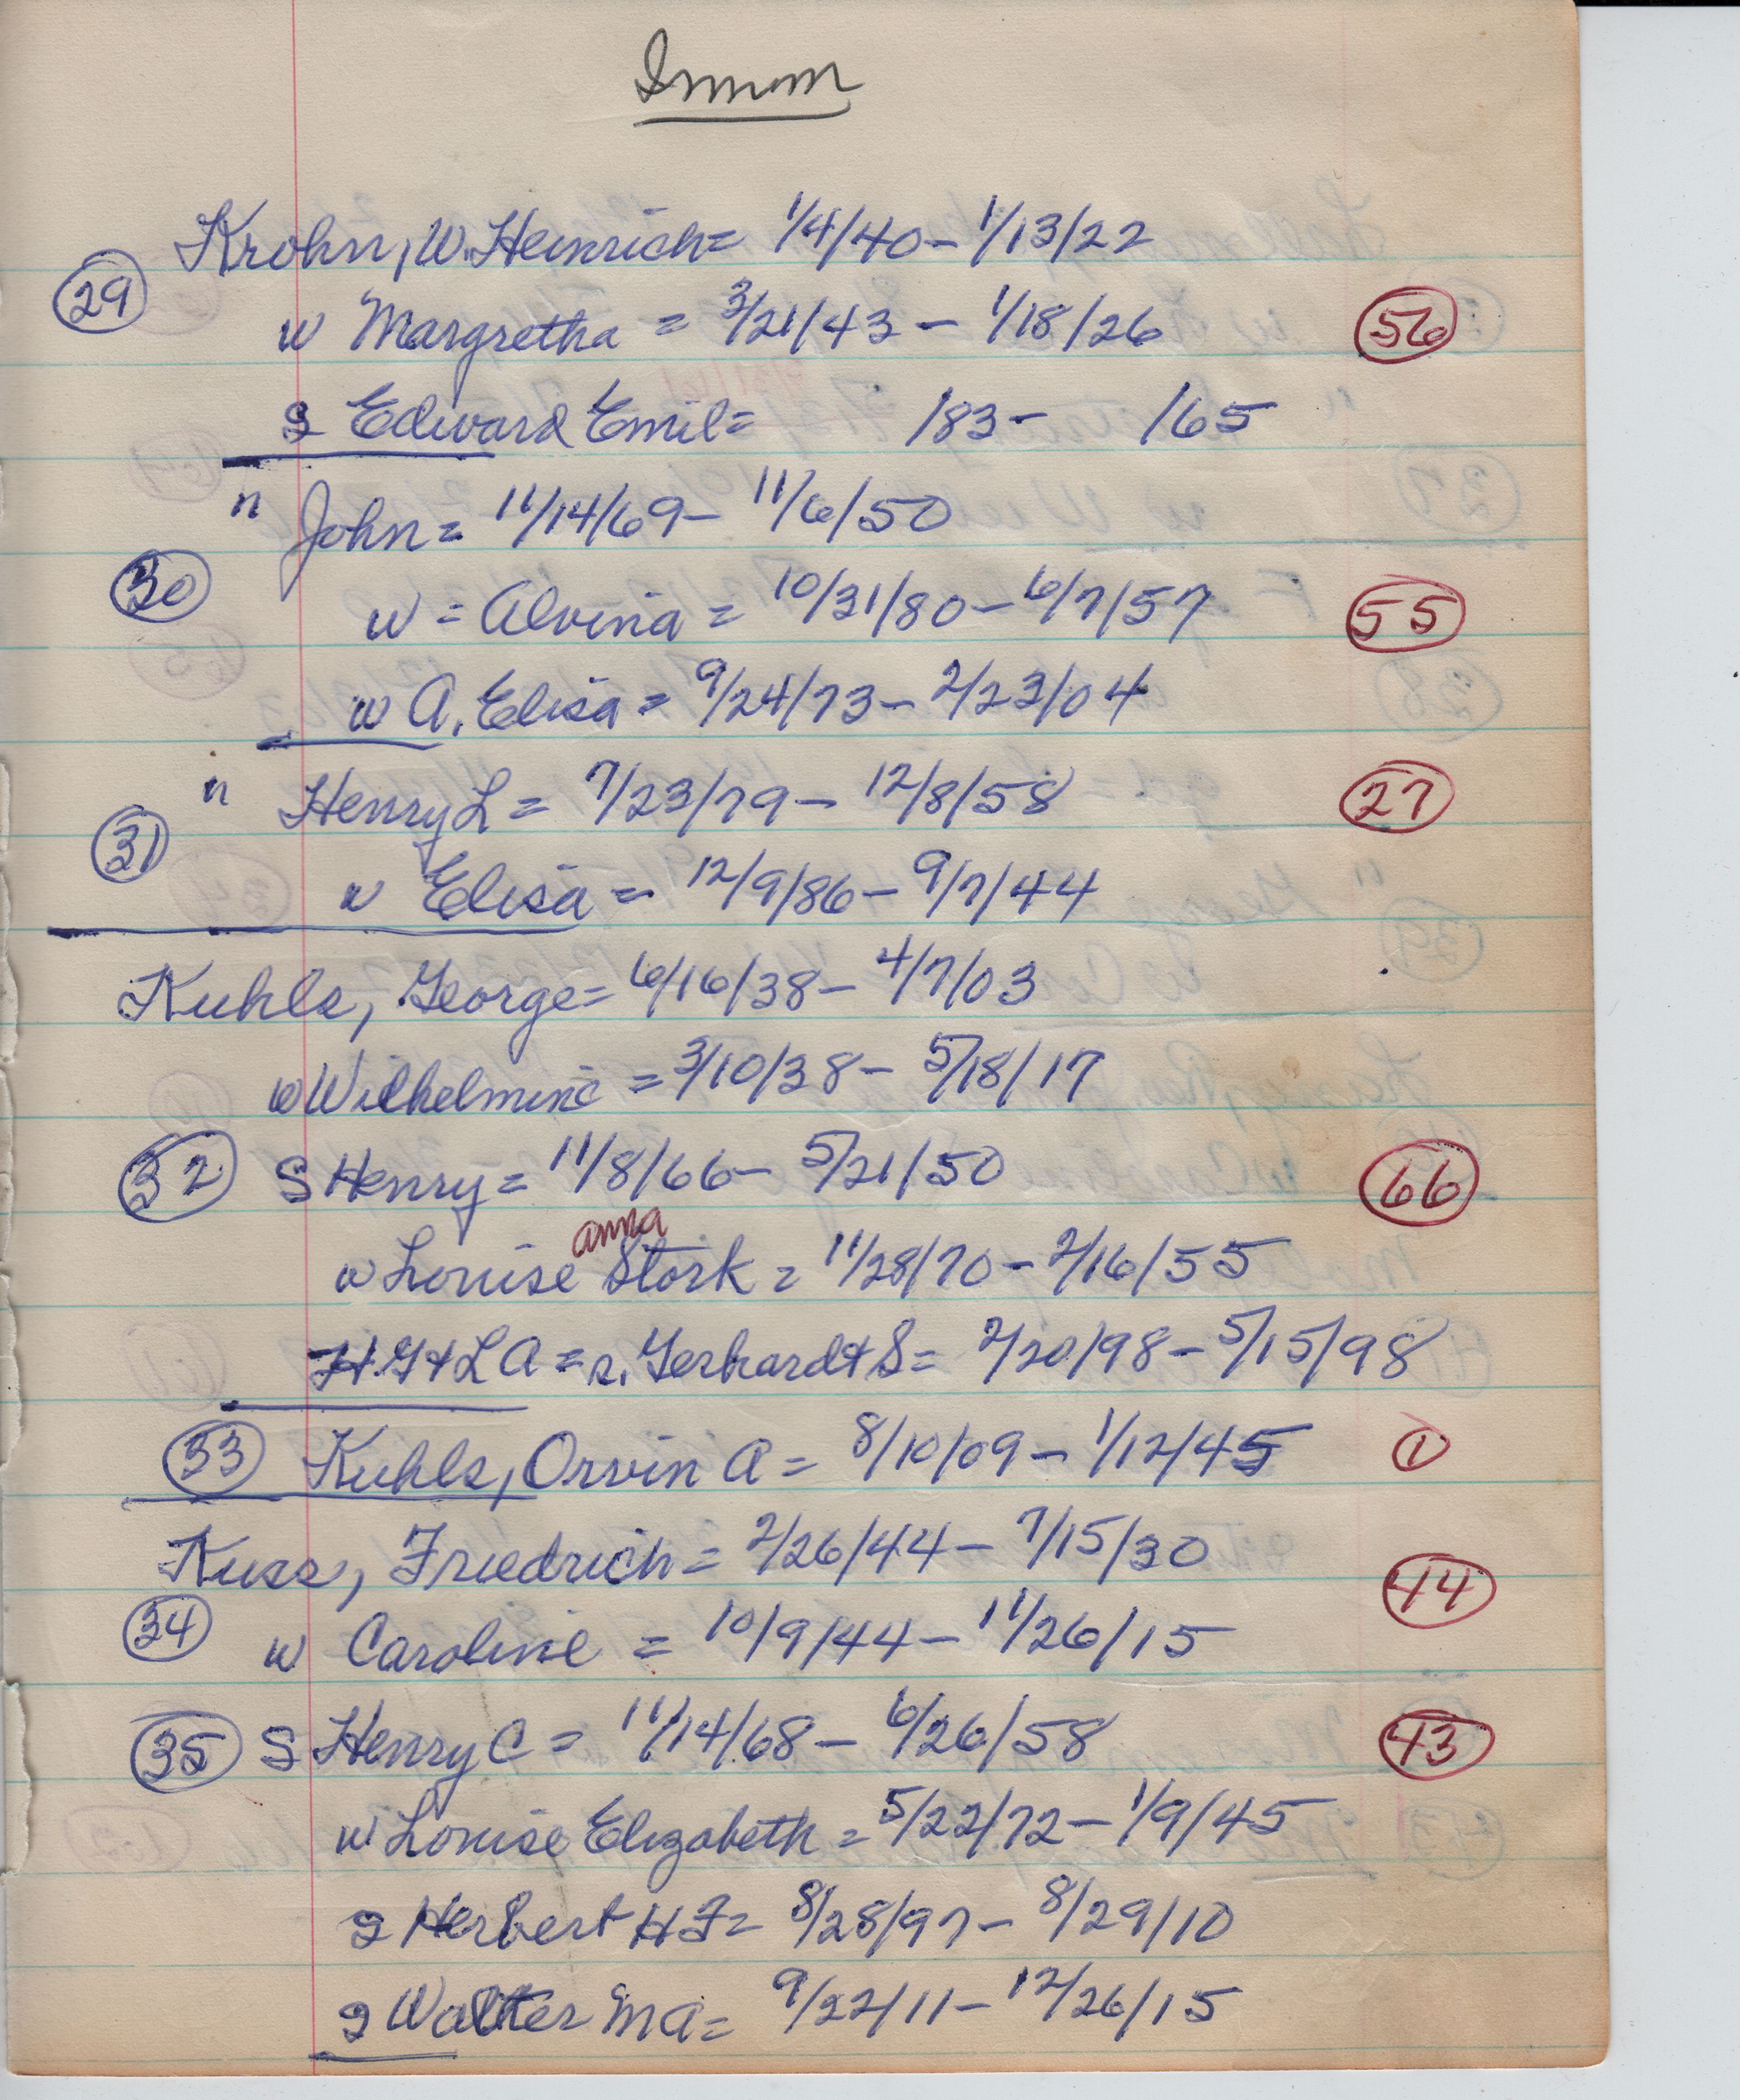 Immm
Krohn, W. Heinrich = 1/4/40 - 1/13/22
29
w Margretha = 3/21/43 - 1/18/26 56
s Edward Emil = /83 - /65
" John = 11/14/69 - 11/6/50
30
w = Alvina = 10/31/80 - 6/7/57 55
w A. Elisa = 9/24/73 - 2/23/04
" Henry L = 7/23/79 - 12/8/58 27
31
w Elisa = 12/9/86 - 9/7/44
Kuhls, George = 6/16/38 - 4/7/03
w Wilhelmine = 3/10/38 - 5/18/17
32 S Henry = 11/8/66 - 5/21/50 66
anna
w Louise Stork = 11/28/70 - 2/16/55
H.G + L A = s. Gerhardt S = 2/20/98 - 5/15/98
33 Kuhls, Orvin A = 8/10/09 - 1/12/45 1
Kuss, Friedrich = 2/26/44 - 7/15/30
44
34 w Caroline = 10/9/44 - 11/26/15
35 S Henry C = 11/14/68 - 6/26/58 43
w Louise Elizabeth = 5/22/72 - 1/9/45
s Herbert H F = 8/28/97 - 8/29/10
s Walter M A = 9/22/11 - 12/26/15